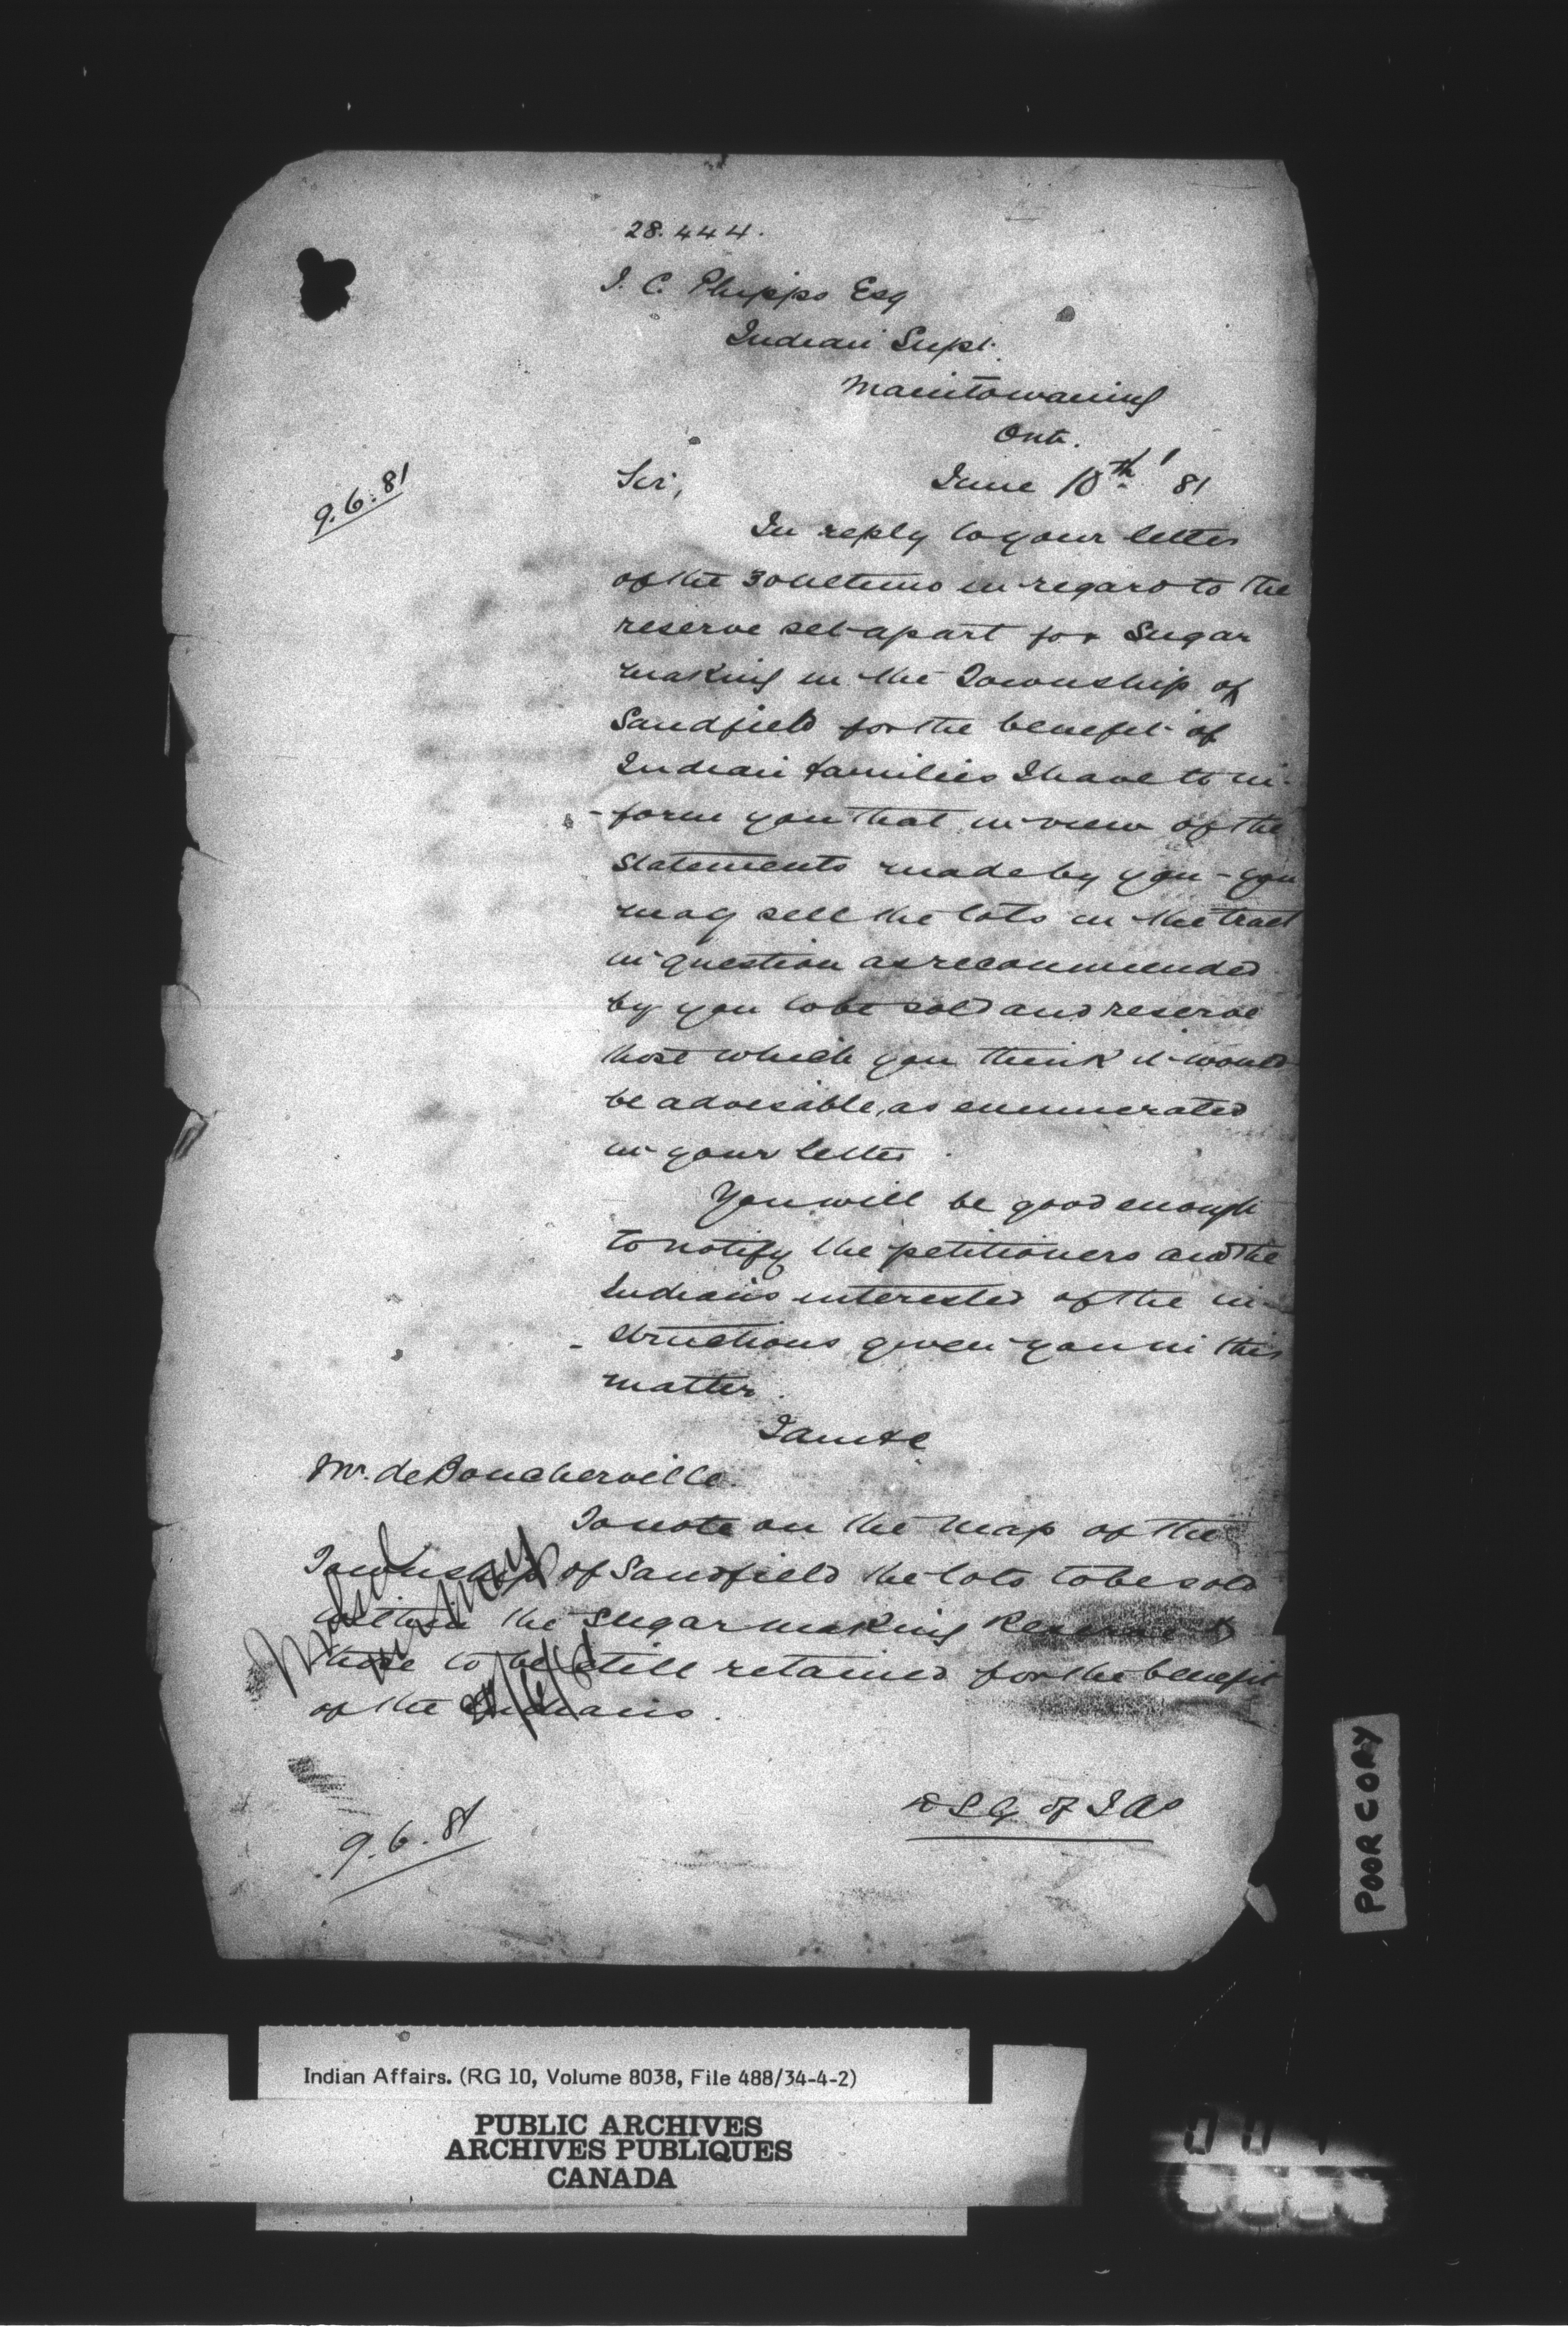 28.444.
J. C. Phipps Esq
Indian Supt.
Manitowaning
Ont.
9.6.81
Sir,
June 10th '81
In reply to your letter
of the 30 ultimo in regard to the
reserve set apart for Sugar
making in the Township of
Sandfield for the benefit of
Indian families I have to in-
-form you that in view of the
statements made by you - you
may sell the lots in the tract
in question as recommended
by you to be sold and reserve
those which you think it would
be advisable, as enumerated
in your letter.
You will be good enough
to notify the petitioners and the
Indians interested of the in-
-structions given you in this
matter.
I am &c
Mr. de Boucherville.
To note on the map of the
Township of Sandfield the lots to be sold
within the Sugar making Reserve &
those to be still retained for the benefit
of the Indians.
Noted
on map
D S G of I As
9.6.81
POOR COPY
Indian Affairs. (RG 10, Volume 8038, File 488/34-4-2)
PUBLIC ARCHIVES
ARCHIVES PUBLIQUES
CANADA